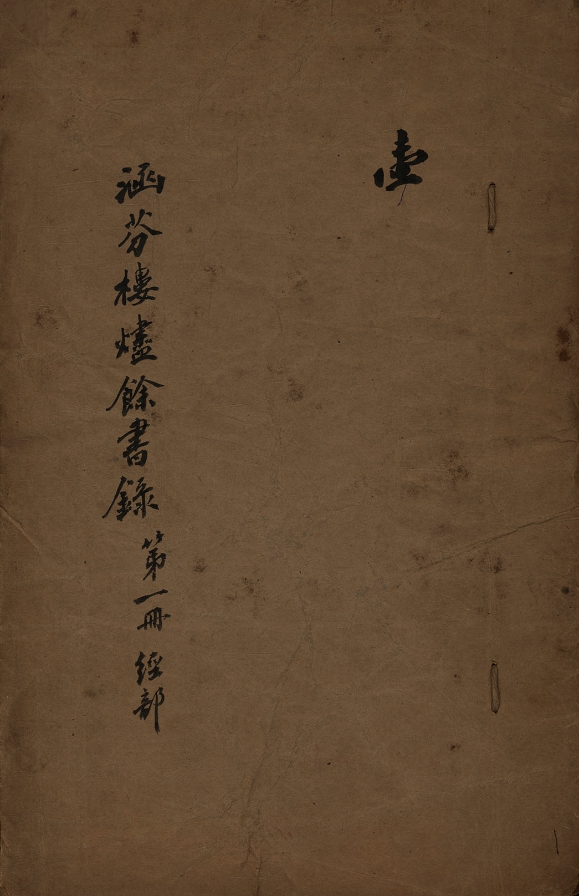 壹
涵芬樓燼餘書錄 第一冊 經部